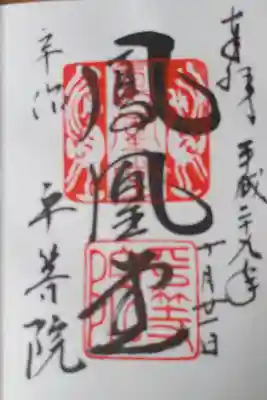 奉拝
平成二十九年
十月廿一日
鳳凰堂
宇治
平等院